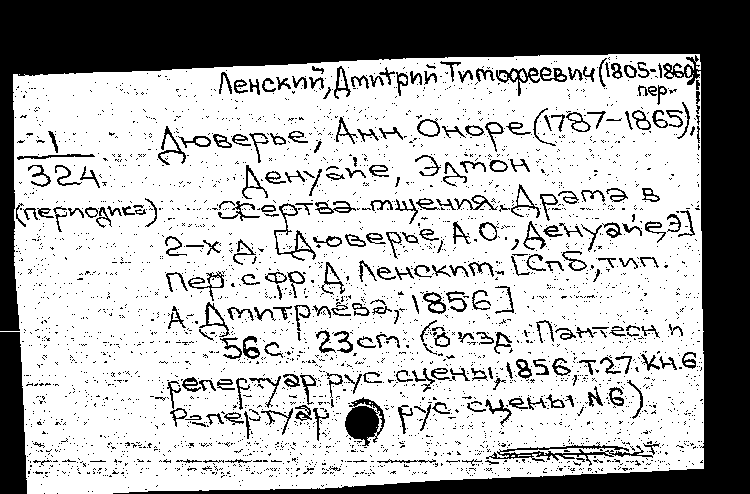 Ленский, Дмитрий Тимофеевич (1805-1860)
пер.
1
324
(периодика)
Дюверье, Анн Оноре (1787-1865),
Денуайе, Эдмон.
Жертва мщения. Драма в
2-х д. [Дюверье, А.О., Денуайе, Э]
Пер. с фр. Д. Ленским. [Спб., тип.
А. Дмитриева, 1856]
56 с. 23 см. (В изд.: Пантеон и
репертуар рус. сцены, 1856, т.27. Кн.6
Репертуар рус. сцены, N6)